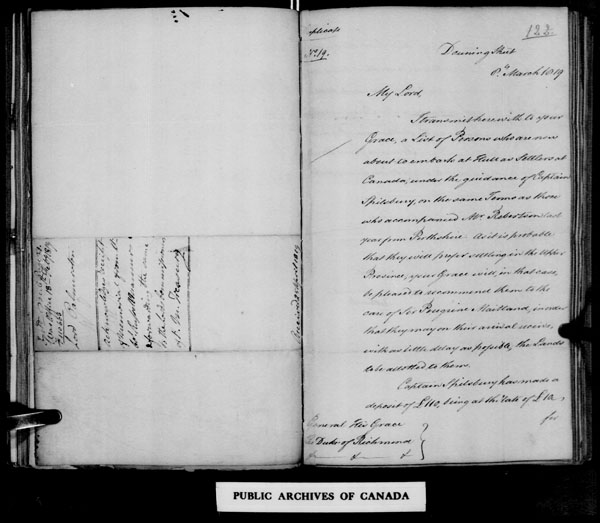 122.
Duplicate
No. 19.
Downing Street
8th March 1819
My Lord,
I transmit herewith to your
Grace, a List of Persons who are now
about to embark at Hull as Settlers at
Canada, under the guidance of Captain
Spilsbury, on the same Terms as those
who accompanied Mr. Robertson last
year from Perthshire. As it is probable
that they will prefer settling in the Upper
Province, your Grace will in that case,
be pleased to recommend them to the
care of Sir Peregrine Maitland, in order
that they may on their arrival receive,
with as little delay as possible, the Lands
to be allotted to them.
Captain Spilsbury has made a
deposit of £110, being at the rate of £10,
for
General His Grace
The Duke of Richmond
&c &c &c
PUBLIC ARCHIVES OF CANADA